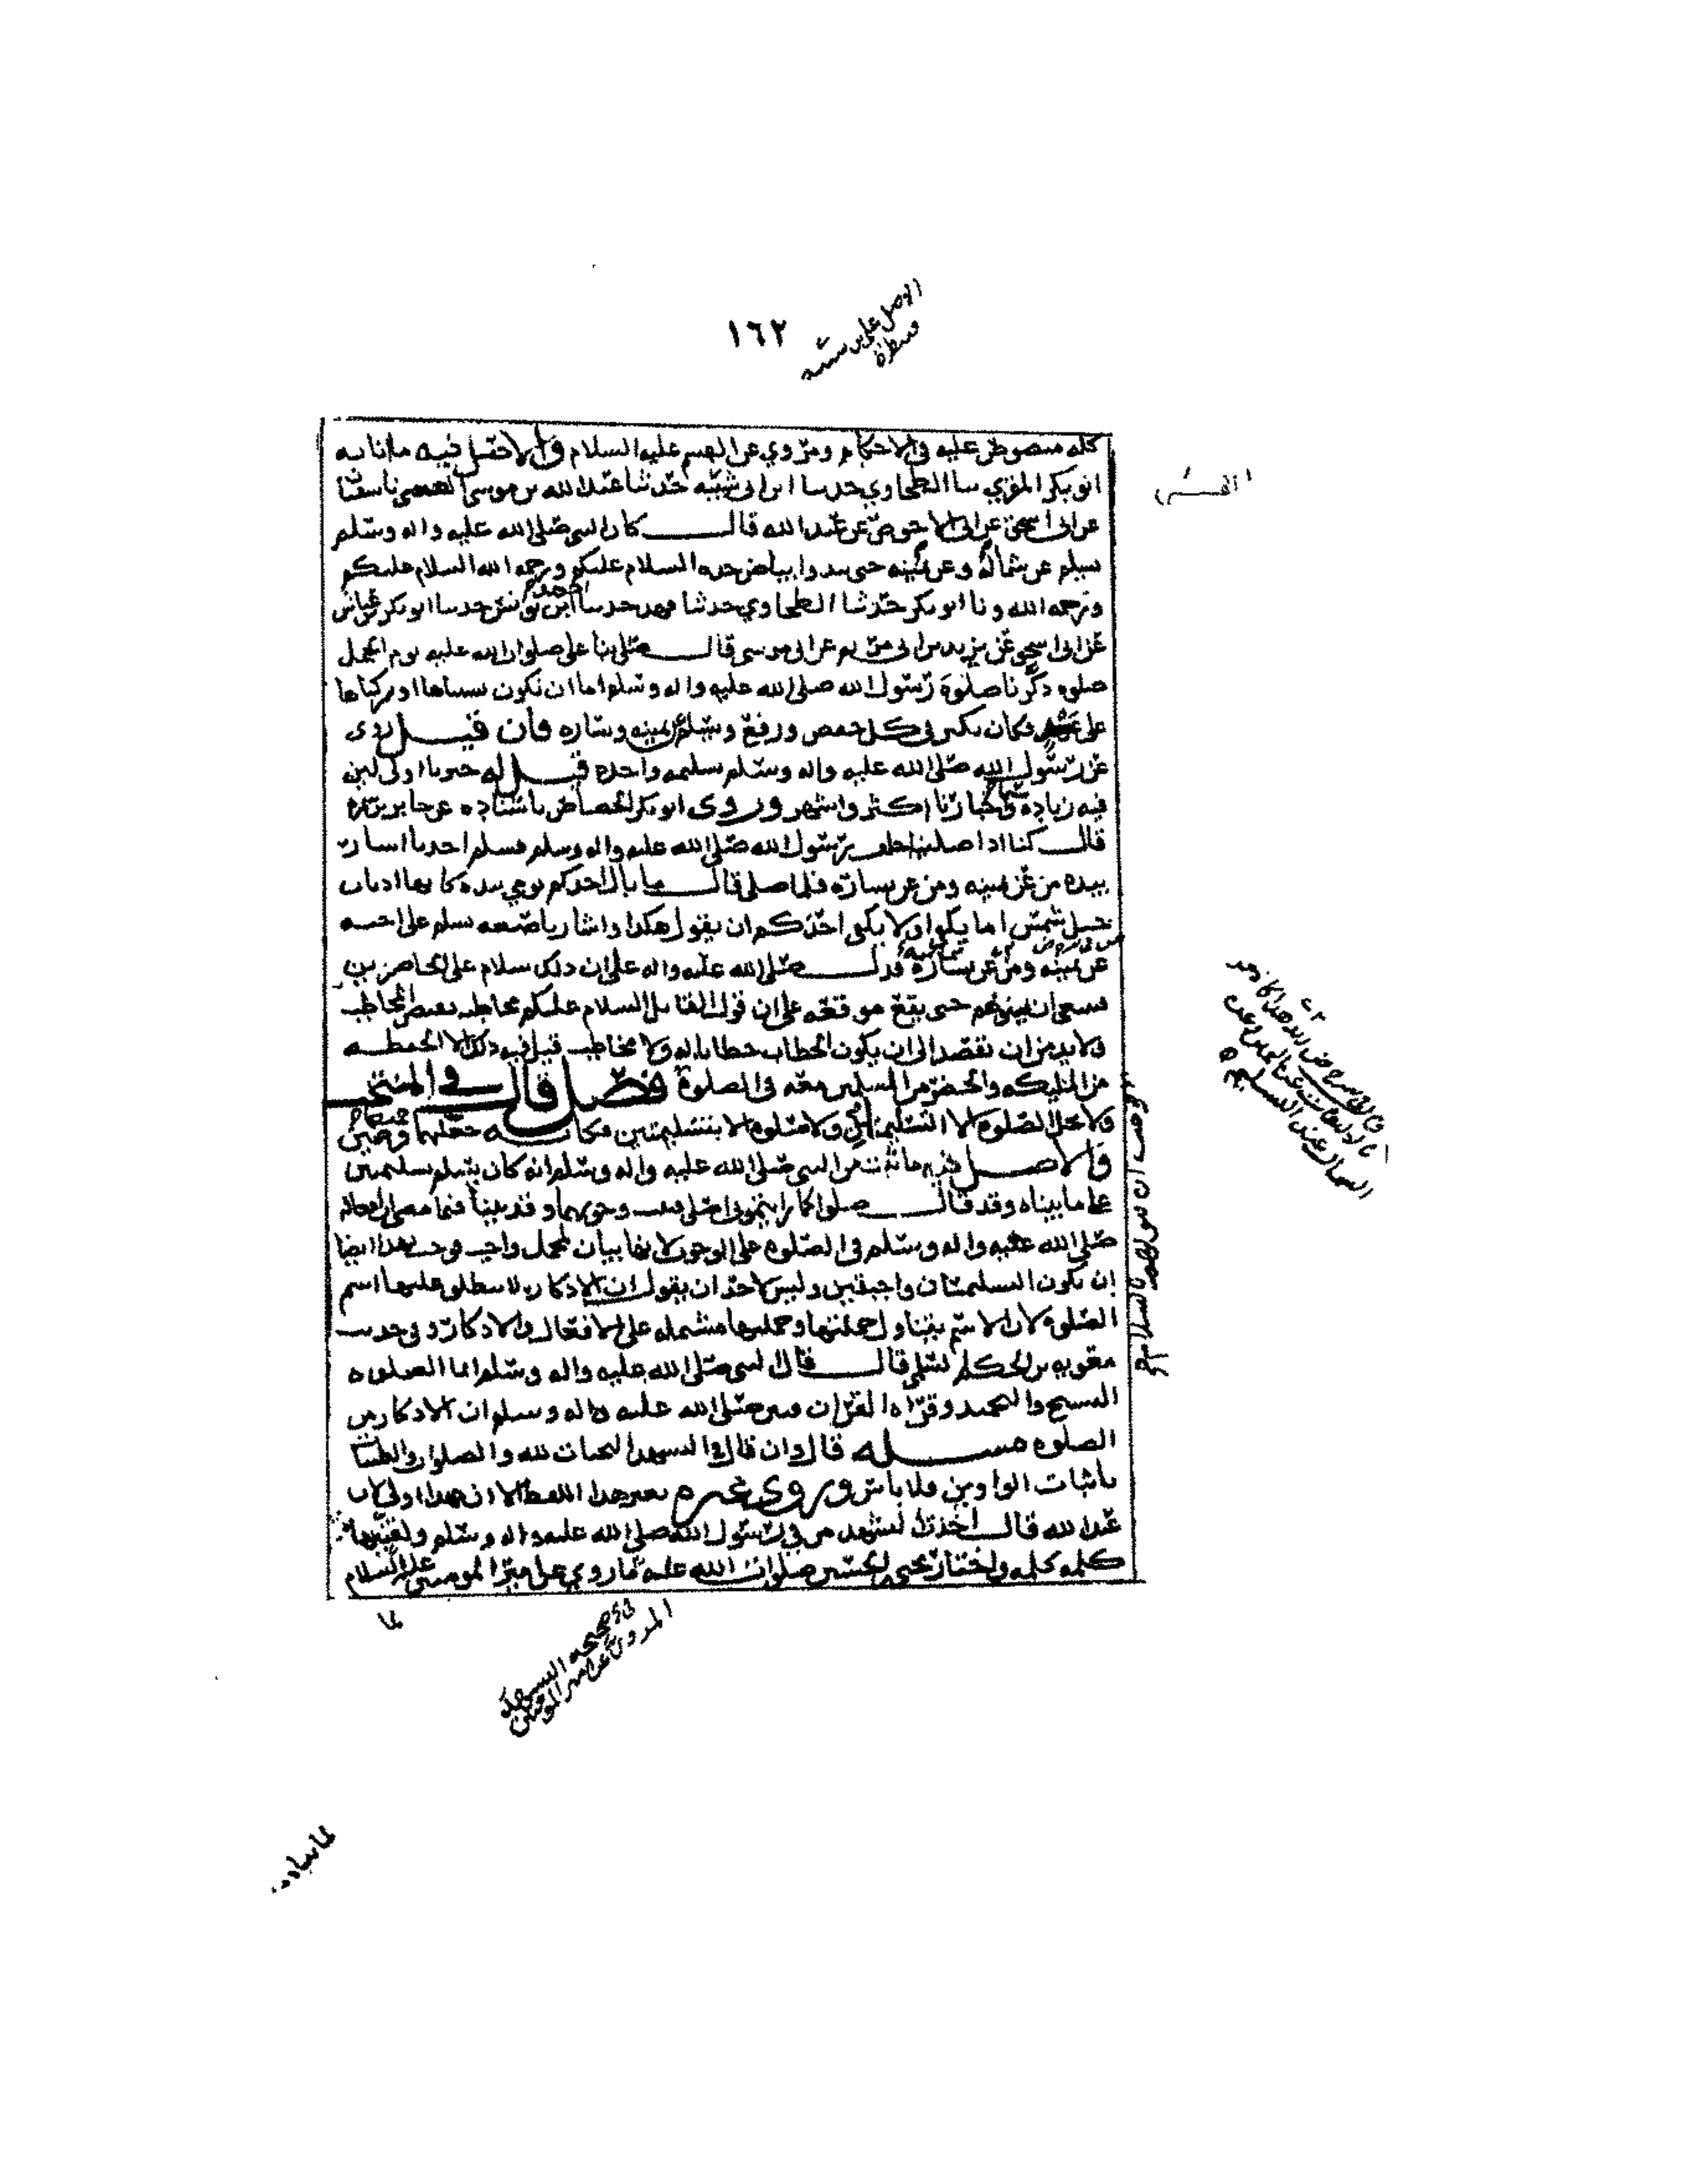 ١٦٢
كله منصوص عليه في الاحكام ومروي عن القسم عليه السلام والاصل فيه ما انا به
ابو بكر المقري سا الطحاوي حدسا ابن ابي شيبه حدثنا عبد الله بن موسى العبسي نا سفيان
عن ابي اسحق عن ابي الاحوص عن عبد الله قال كان النبي صلى الله عليه واله وسلم
يسلم عن شماله وعن يمينه حتى يبدوا بياض خده السلام عليكم ورحمه الله السلام عليكم
ورحمه الله ونا ابو بكر حدثنا الطحاوي حدثنا فهد حدسا احمد بن يونس حدسا ابو بكر بن عياش
عن ابي اسحق عن يزيد بن ابي مريم عن ابي موسى قال صلى بنا علي صلوات الله عليه يوم الجمل
صلوه ذكرنا صلوة رسول الله صلى الله عليه واله وسلم اما ان نكون نسيناها او تركناها
على عمد فكان يكبر في كل خفض ورفع ويسلم عن يمينه ويساره فان قيل روي
عن رسول الله صلى الله عليه واله وسلم تسليمه واحده قيل له خبرنا اولى لان
فيه زيادة واخبارنا اكثر واشهر وروى ابو بكر الجصاص باسناده عن جابر بن سمره
قال كنا اذا صلينا خلف رسول الله صلى الله عليه واله وسلم فسلم احدنا اشار
بيده من عن يمينه ومن عن يساره فلما صلى قال ما بال احدكم يومي بيده كانها اذناب
خيل شمس اما يكفي او لا يكفي احدكم ان يقول هكذا واشار باصبعه يسلم على اخيه
عن يمينه ومن عن يساره فدل صلى الله عليه واله على ان ذلك سلام على الحاضرين
فينبغي ان ينويهم حتى يقع موقعه على ان قول القائل السلام عليكم مخاطبه تقتضي المخاطب
ولا بد من ان يقصد الى ان يكون الخطاب خطابا له ولا مخاطب قيل فيه ذلك الا الحفظه
من المليكه والحضر من المسلمين معه في الصلوة فصل قال في المنتخب
ولا تحليل للصلوة الا التسليم ولا صلوة الا بتسليمتين فكانه جعلهما فرضين
والاصل فيه ما ثبت عن النبي صلى الله عليه واله وسلم انه كان يسلم تسليمتين
على ما بيناه وقد قال صلوا كما رايتموني اصلي فثبت وجوبهما وقد بينا فيما مضى ان افعاله
صلى الله عليه واله وسلم في الصلوه على الوجوب لانها بيان لمجمل واجب فوجب بهذا ايضا
ان تكون التسليمتان واجبتين وليس لاحد ان يقول ان الاذكار لا ينطلق عليها اسم
الصلوه لان الاسم يتناول جملتها وجملتها مشتمله على الافعال والاذكار وفي حديث
معويه بن الحكم السلمي قال قال النبي صلى الله عليه واله وسلم انما الصلوه
التسبيح والتحميد وقراة القران فبين صلى الله عليه واله وسلم ان الاذكار من
الصلوه مسله قال وان قال في التشهد التحيات لله والصلوات والطيبات
باثبات الواوين فلا باس وروى غيره بغير هذا اللفظ الا ان هذا اولى لان
عبد الله قال اخذت التشهد من في رسول الله صلى الله عليه واله وسلم ولقنيها
كلمه كلمه واختار يحيى بن الحسين صلوات الله عليه ما روي عن امير المومنين عليه السلام
لما